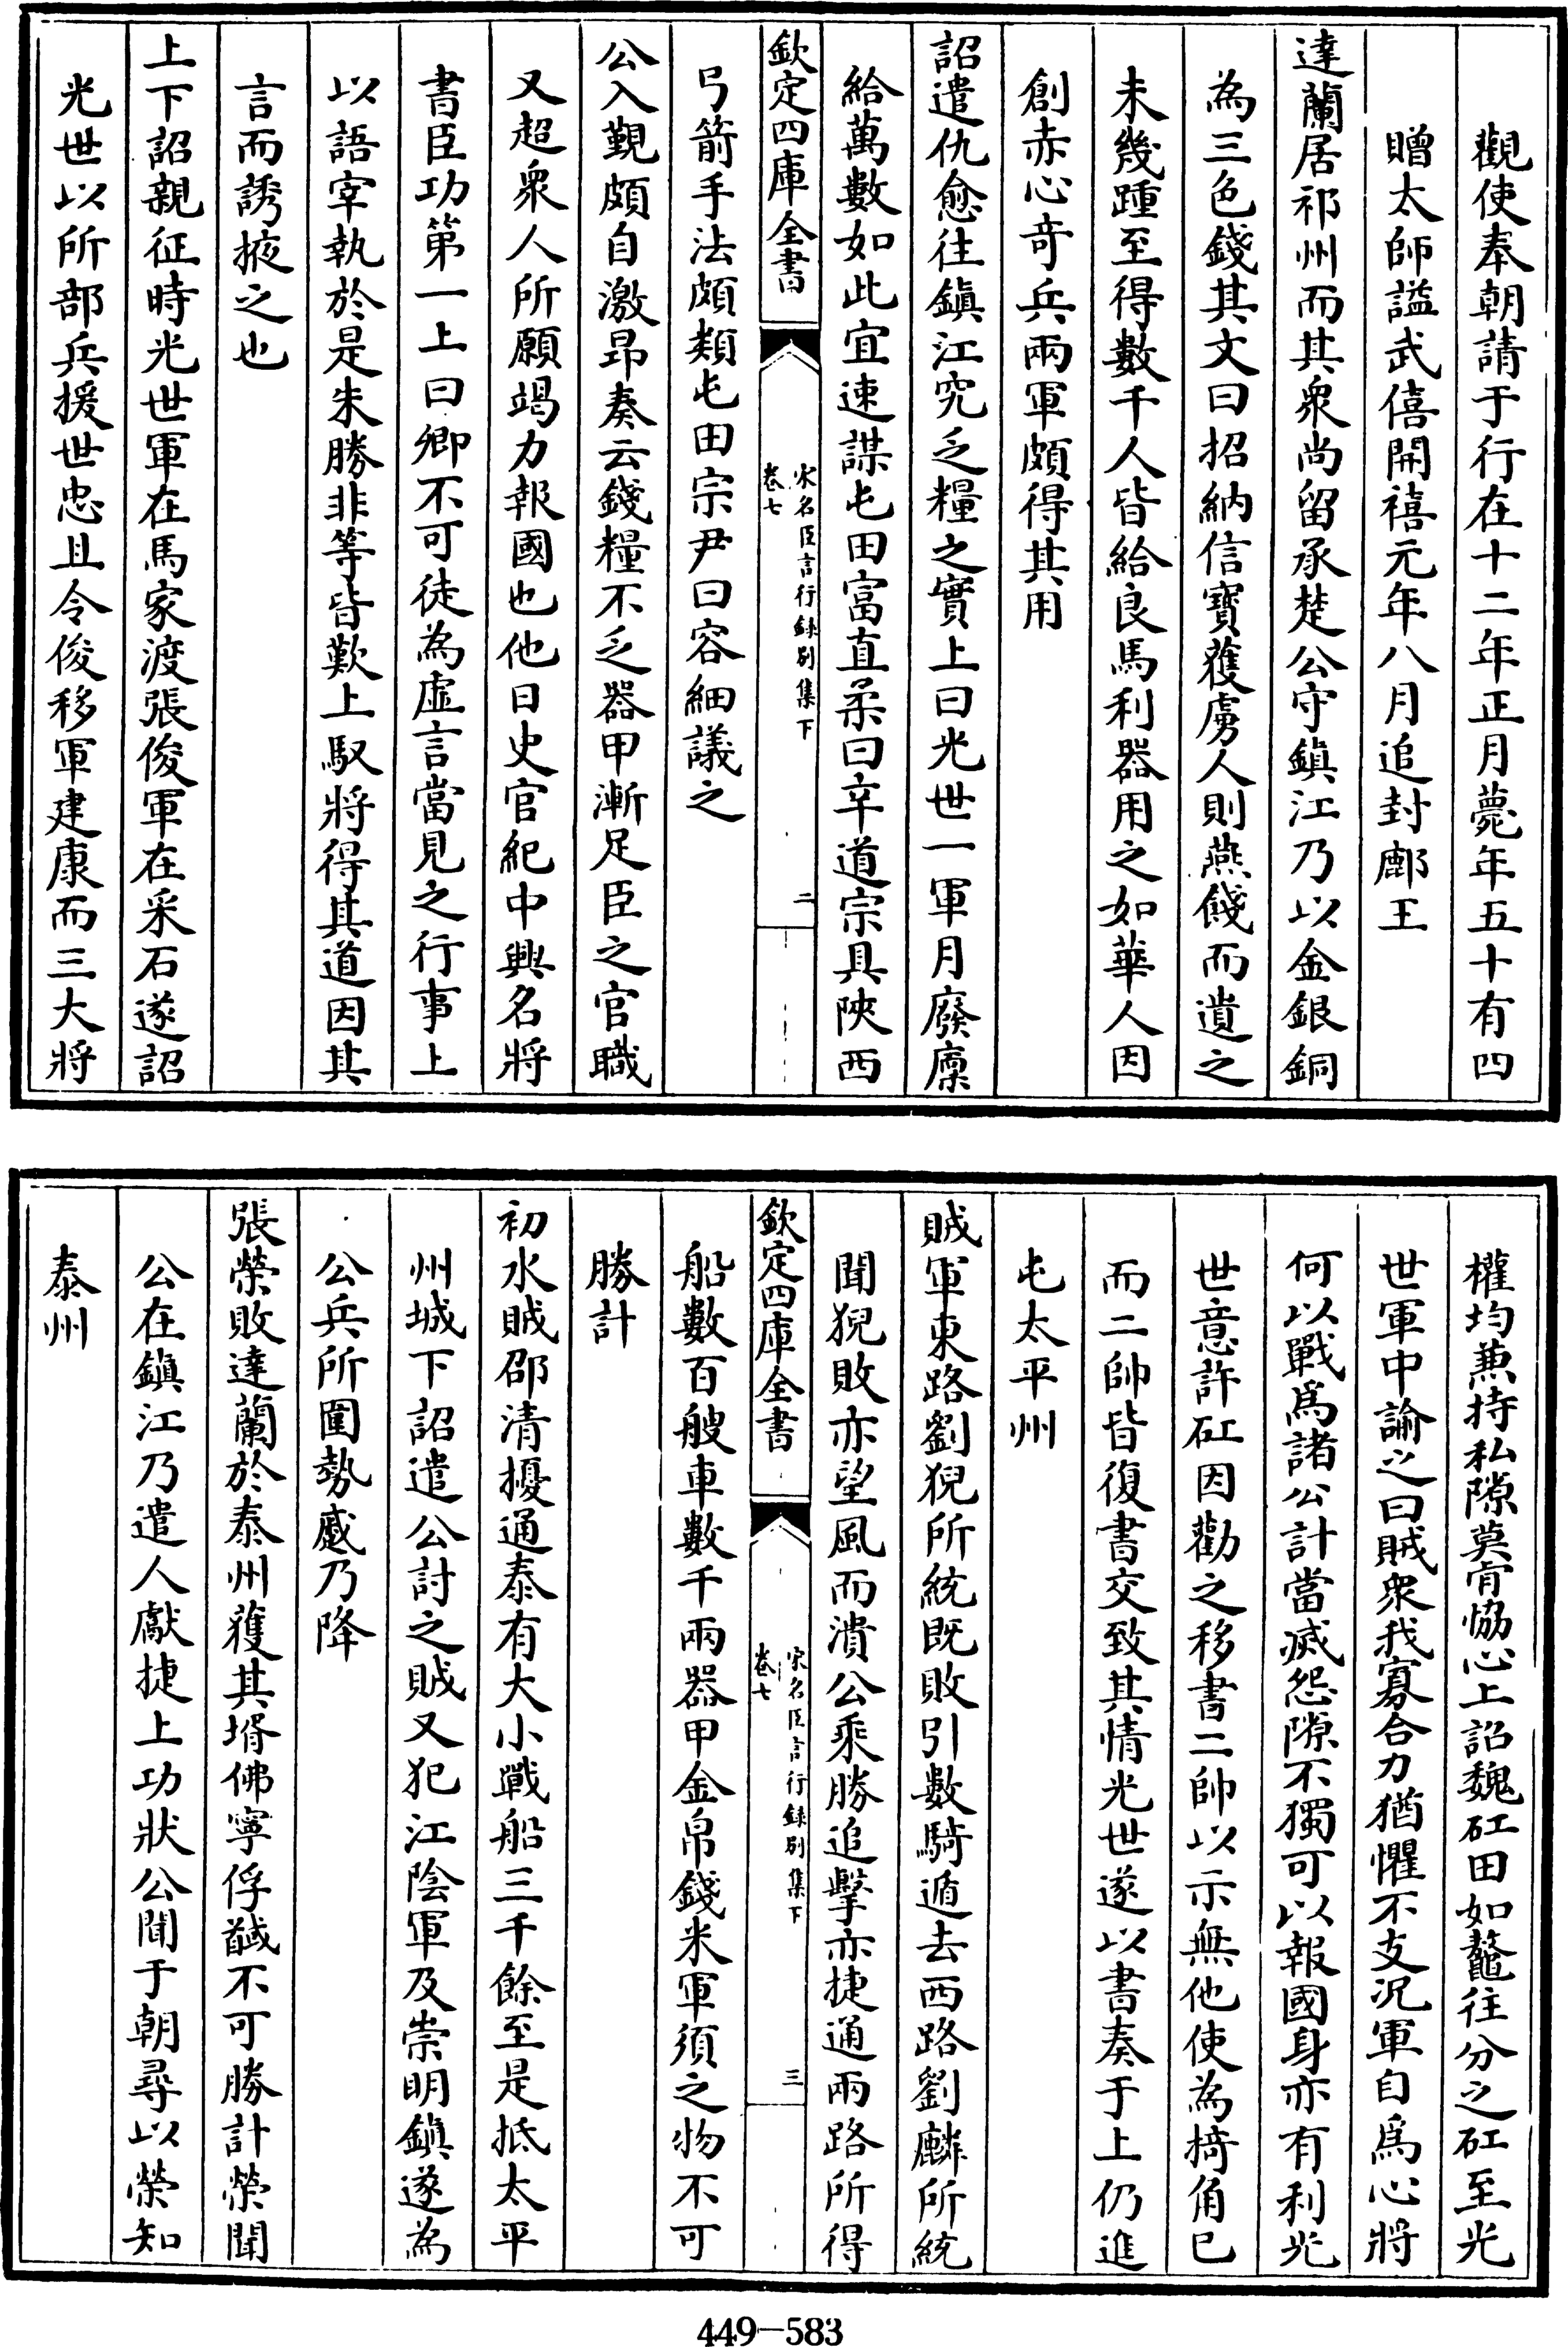 觀使奉朝請于行在十二年正月薨年五十有四
贈太師謚武僖開禧元年八月追封鄜王
達蘭居祁州而其衆尚留承楚公守鎮江乃以金銀銅
為三色錢其文曰招納信寳獲虜人則燕餞而遺之
未幾踵至得數千人皆給良馬利器用之如華人因
創赤心奇兵兩軍頗得其用
詔遣仇愈往鎮江究乏糧之實上曰光世一軍月廢廩
給萬數如此宜速謀屯田富直柔曰辛道宗具陜西
欽定四庫全書
宋名臣言行録別集下
卷七
二
弓箭手法頗類屯田宗尹曰容細議之
公入覲頗自激昂奏云錢糧不乏器甲漸足臣之官職
又超衆人所願竭力報國也他日史官紀中興名將
書臣功第一上曰卿不可徒為虚言當見之行事上
以語宰執於是朱勝非等皆歎上馭將得其道因其
言而誘掖之也
上下詔親征時光世軍在馬家渡張俊軍在采石遂詔
光世以所部兵援世忠且令俊移軍建康而三大將
權均兼持私隙莫肯恊心上詔魏矼田如鼇往分之矼至光
世軍中諭之曰賊衆我寡合力猶懼不支況軍自爲心將
何以戰爲諸公計當滅怨隙不獨可以報國身亦有利光
世意許矼因勸之移書二帥以示無他使為犄角已
而二帥皆復書交致其情光世遂以書奏于上仍進
屯太平州
賊軍東路劉猊所統既敗引數騎遁去西路劉麟所統
聞猊敗亦望風而潰公乘勝追擊亦捷通兩路所得
欽定四庫全書
宋名臣言行録別集下
卷七
三
船數百艘車數千兩器甲金帛錢米軍須之物不可
勝計
初水賊邵清擾通泰有大小戰船三千餘至是抵太平
州城下詔遣公討之賊又犯江陰軍及崇明鎮遂為
公兵所圍勢蹙乃降
張榮敗達蘭於泰州獲其壻佛寧俘馘不可勝計榮聞
公在鎮江乃遣人獻捷上功狀公聞于朝尋以榮知
泰州
449-583